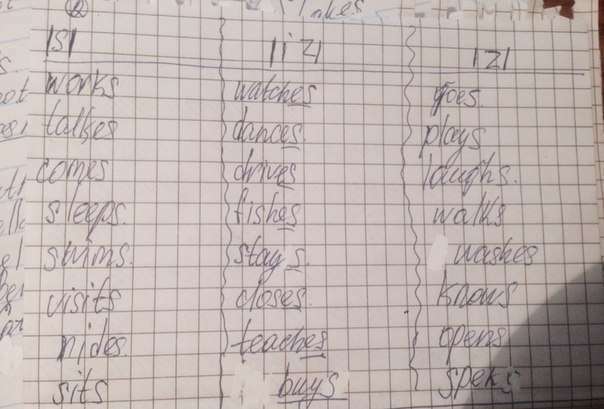 takes
/s/ /iz/ /z/
works watches goes
talkes dances plays
comes drives laughs.
sleeps. fishes walks
swims. stays. washes
visits closes knows
rides. teaches opens
sits buys speks